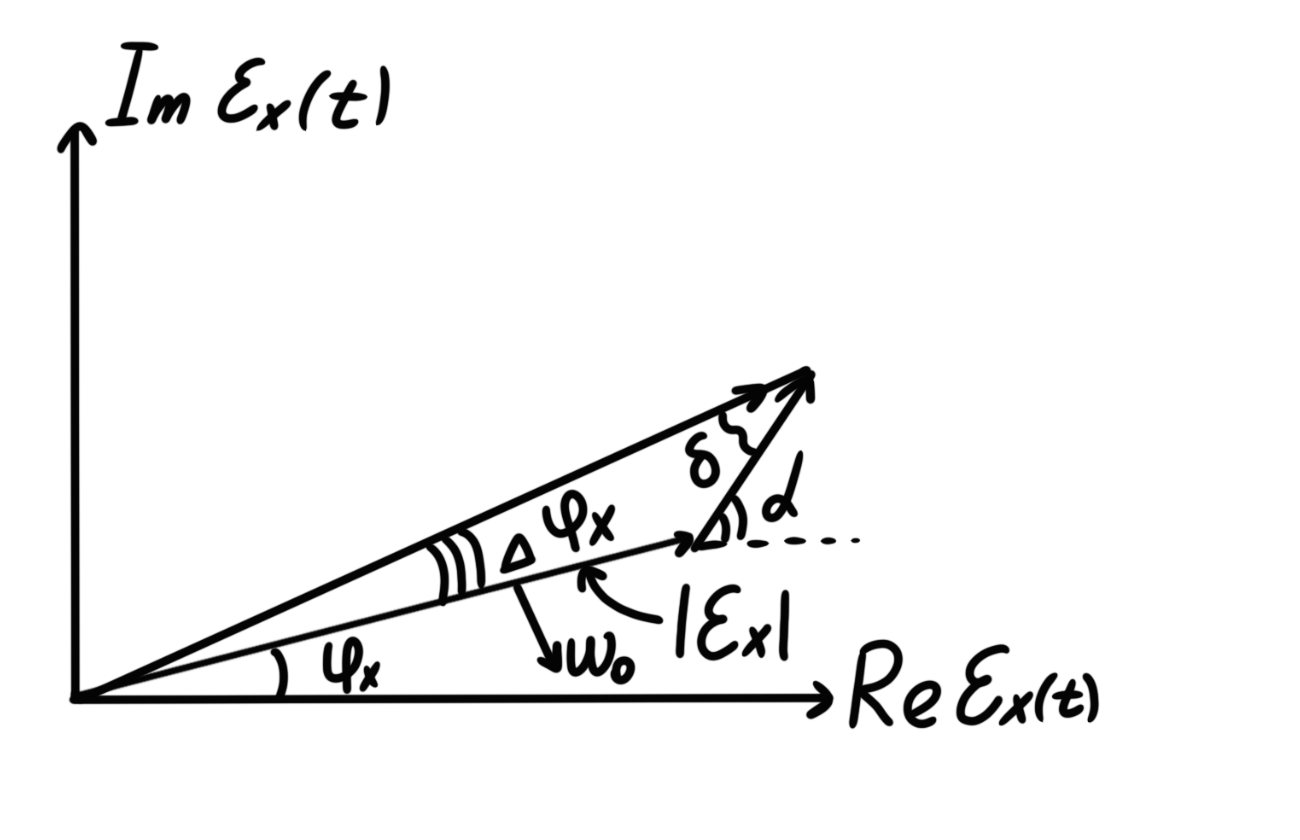 Im Ɛx(t)
δ
α
Δφx
|Ɛx|
φx
w₀
Re Ɛx(t)